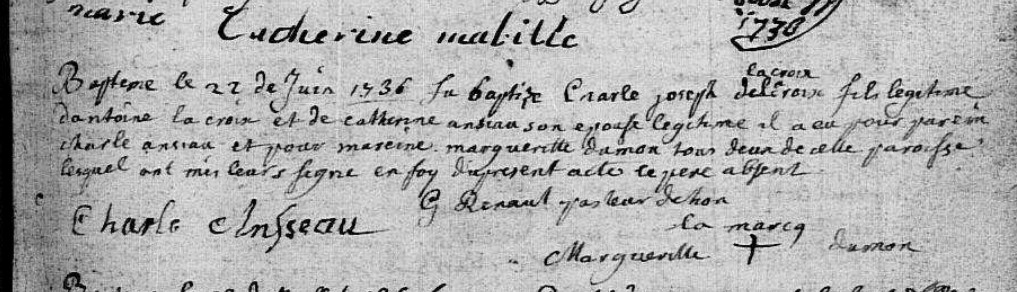 marie
Catherine mabille
1736
la croix
Bapteme le 22 de Juin 1736 fu baptize Charle joseph delcroix fils legitime
dantoine la croix et de catherine ansiau son epouse legitime il a eu pour parein
charle ansiau et pour mareine marguerille dumon tous deux de celle paroisse
lesquel ont mis leurs signe en foy du present acte le pere absent
G Renault pasteur dehon
Charle Ansseau
la marcq
Marguerille + dumon